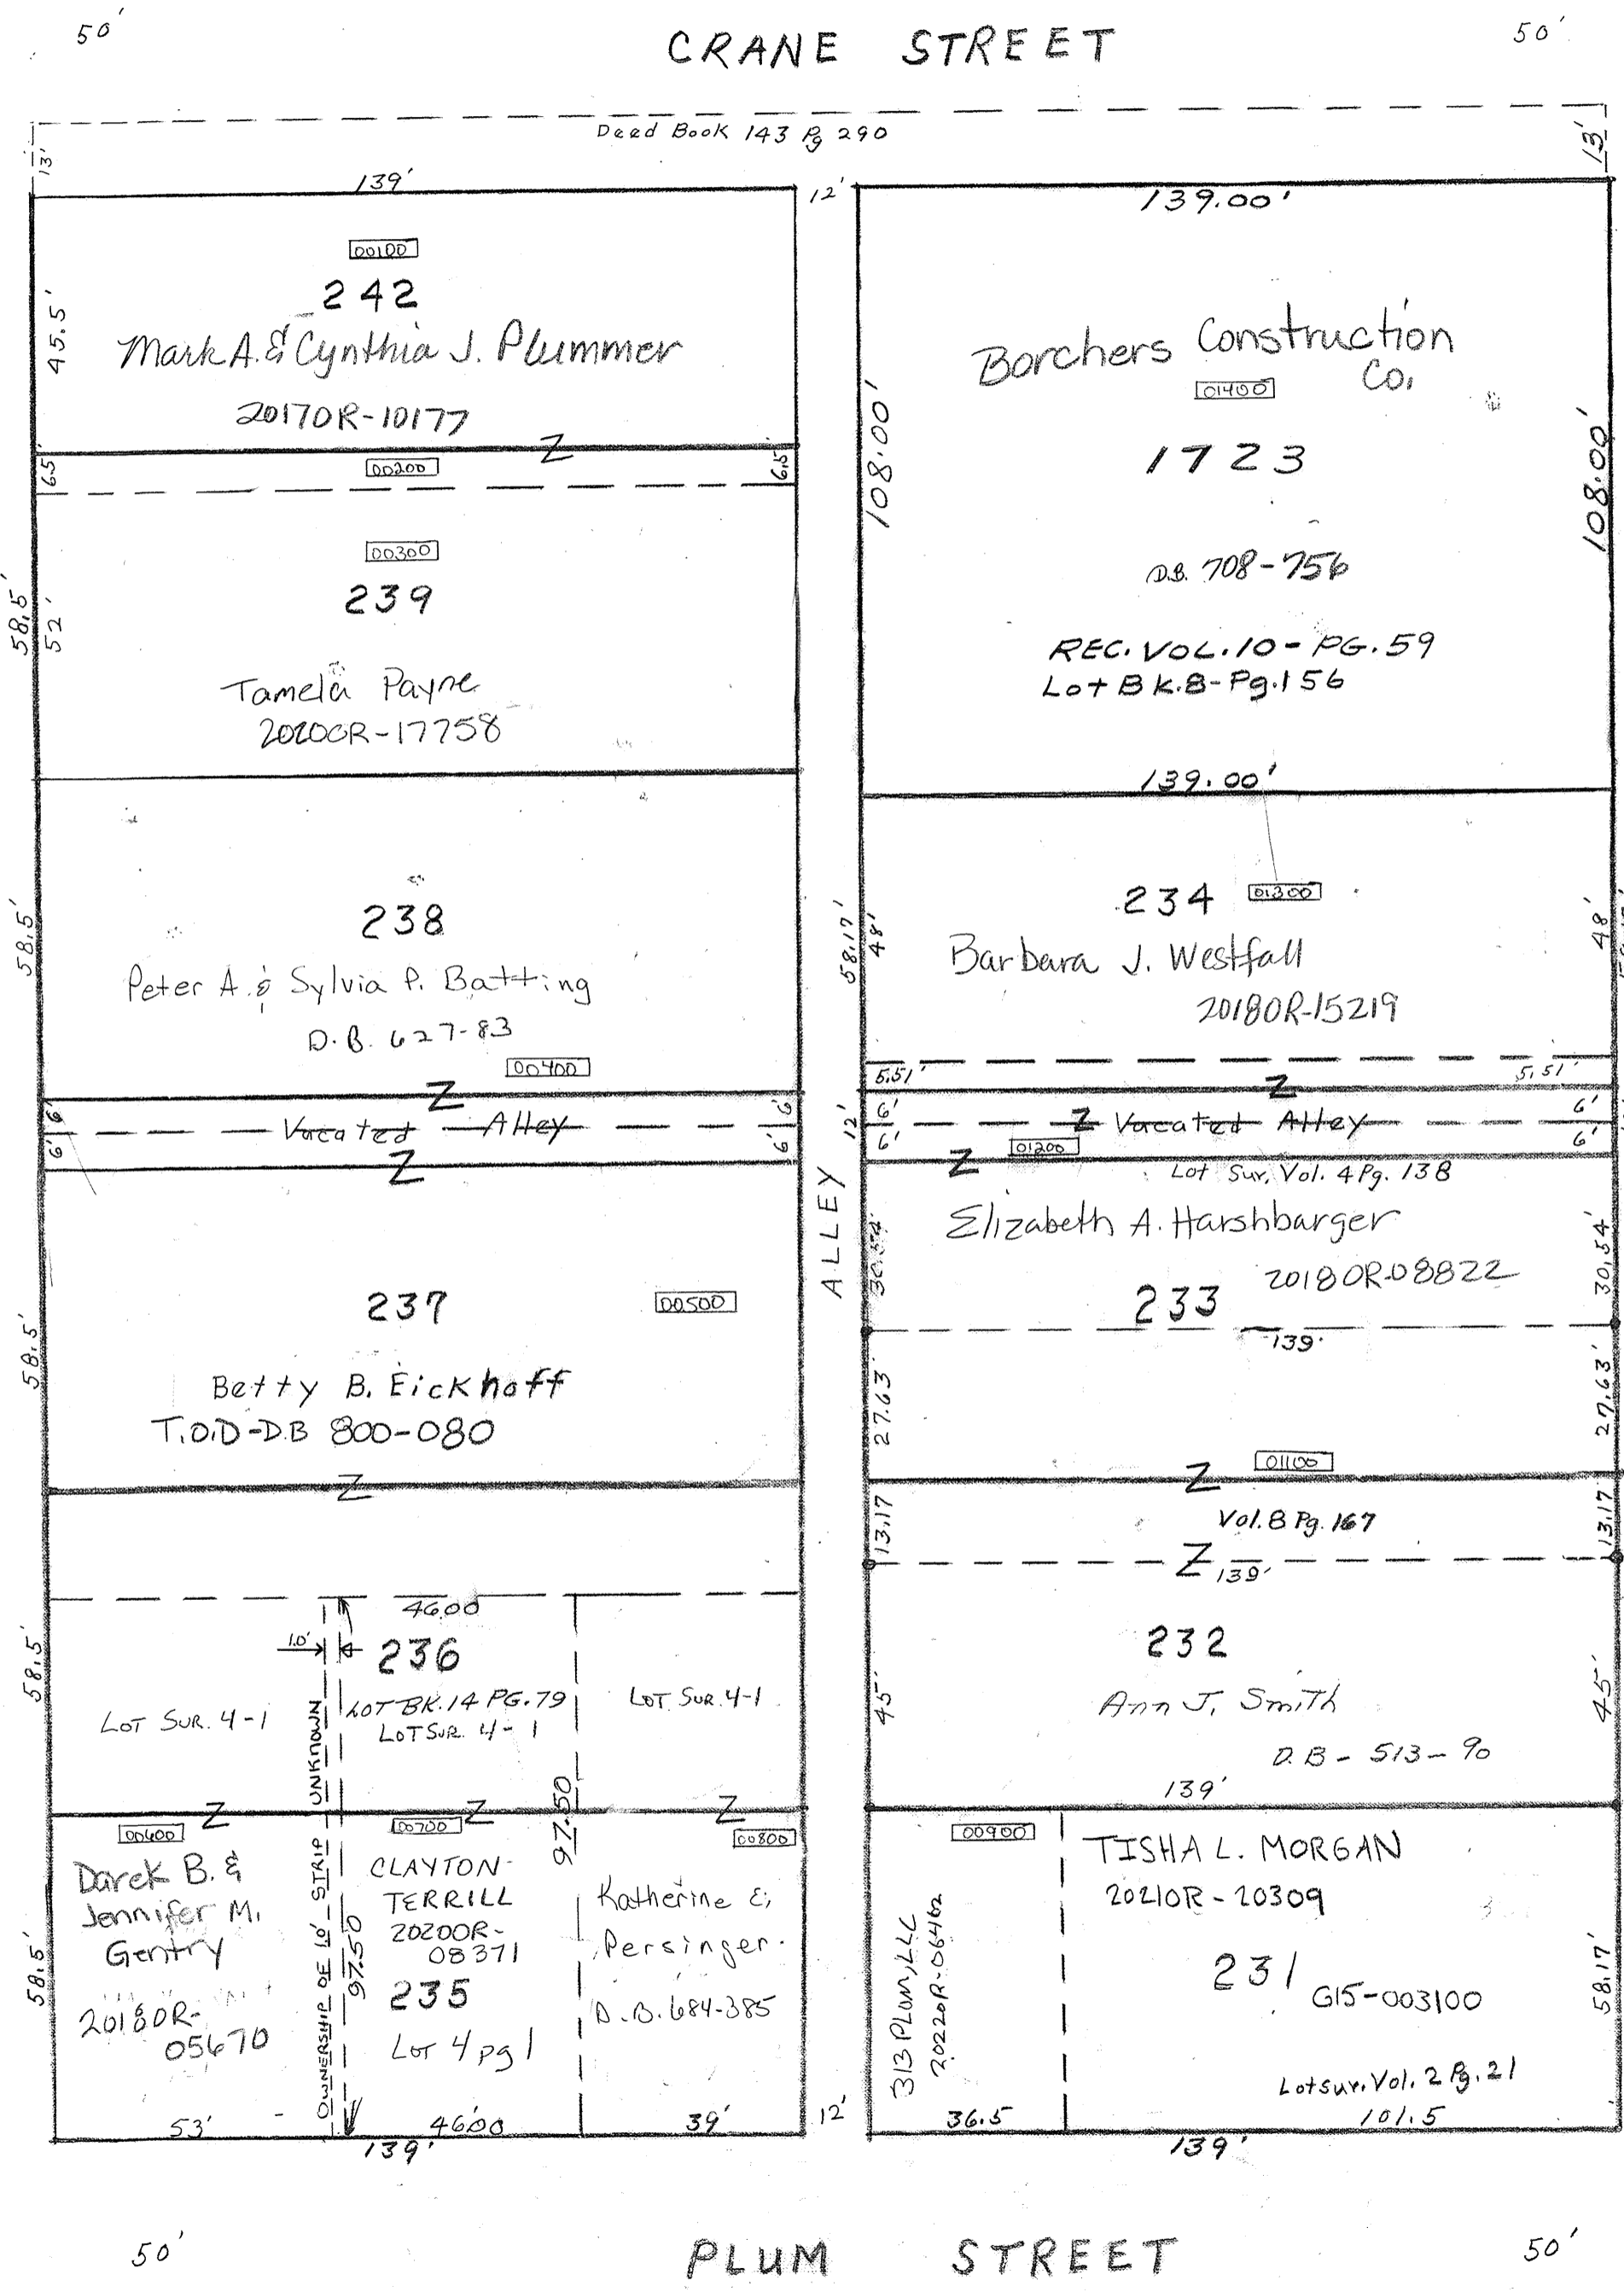 50'
CRANE STREET
50'
Deed Book 143 Pg 290
13'
13'
139'
12'
139.00'
00100
242
45.5'
Mark A. & Cynthia J. Plummer
20170R-10177
Z
6.5'
00200
6.5'
00300
239
58.5'
52'
Tamela Payne
20200R-17758
238
58.5'
Peter A. & Sylvia P. Batting
D.B. 627-83
00400
Z
6'
6'
Vacated Alley
6'
6'
Z
237
00500
58.5'
Betty B. Eickhoff
T.O.D-DB 800-080
Z
46.00
1.0'
236
58.5'
LOT SUR. 4-1
LOT BK. 14 PG. 79
LOT SUR. 4-1
LOT SUR. 4-1
OWNERSHIP OF 1.0' STRIP UNKNOWN
97.50
97.50
Z
Z
Z
00600
00700
00800
Darek B. &
Jennifer M.
Gentry
20180R-
05670
58.5'
CLAYTON
TERRILL
20200R-
08371
235
Lot 4 pg 1
Katherine E.
Persinger
D.B. 684-385
53'
46.00
39'
139'
12'
ALLEY
12'
Borchers Construction
Co.
01400
108.00'
108.00'
1723
D.B. 708-756
REC. VOL. 10 - PG. 59
Lot Bk. 8 - Pg. 156
139.00'
234
01300
58.17'
48'
48'
Barbara J. Westfall
20180R-15219
5.51'
5.51'
Z
6'
6'
Z Vacated Alley
6'
6'
01200
Z
Lot Sur. Vol. 4 Pg. 138
Elizabeth A. Harshbarger
20180R-08822
30.54'
30.54'
233
139'
27.63'
27.63'
01100
Z
13.17
Vol. 8 Pg. 167
13.17
Z
139'
232
45'
45'
Ann J. Smith
D.B - 513 - 90
139'
00900
313 PLUM, LLC
20220R-06462
TISHA L. MORGAN
20210R - 20309
231
G15-003100
58.17'
Lot sur. Vol. 2 Pg. 21
36.5
101.5
139'
50'
PLUM STREET
50'